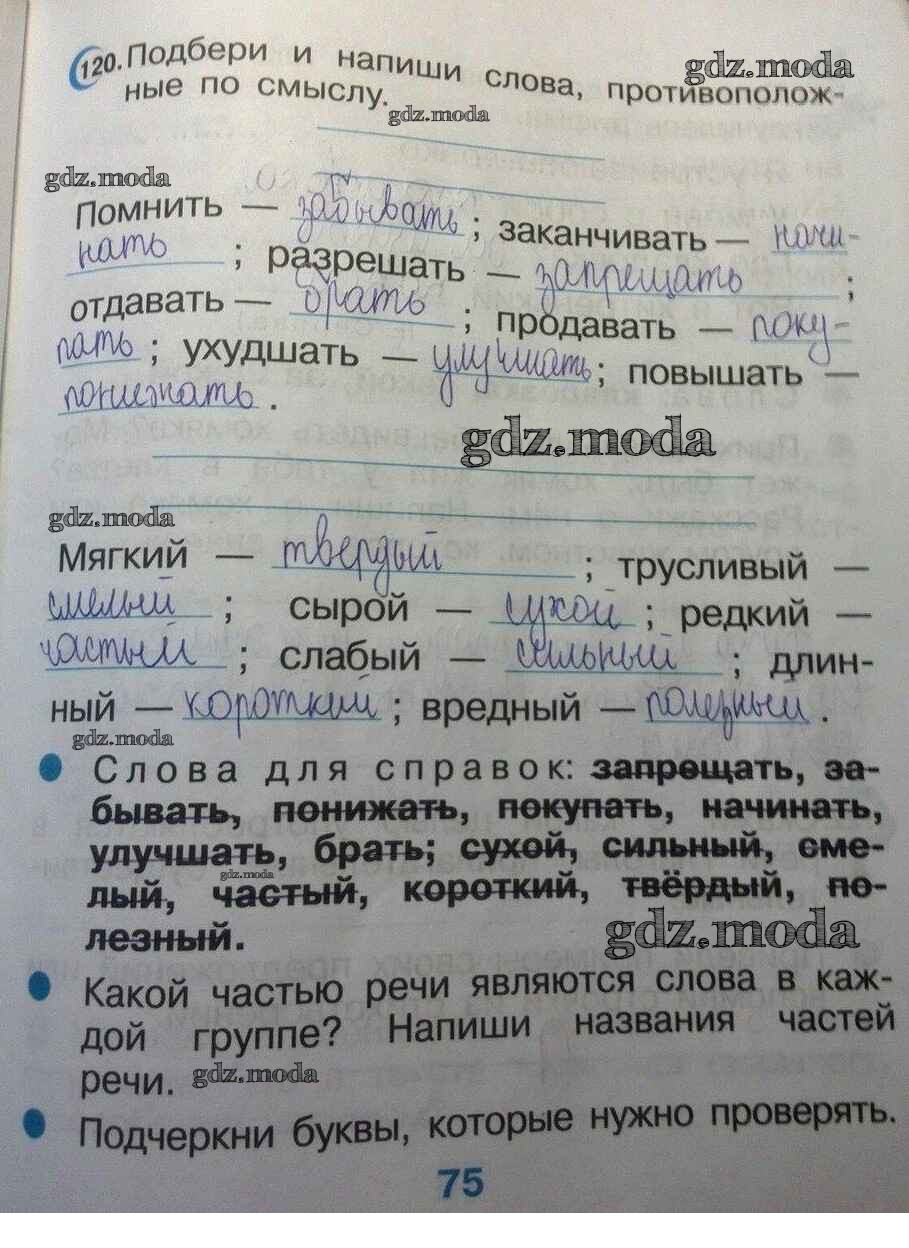 120. Подбери и напиши слова, противополож-
gdz.moda
ные по смыслу.
gdz.moda
gdz.moda
Помнить — забывать ; заканчивать — начи-
нать ; разрешать — запрещать ;
отдавать — брать ; продавать — поку-
пать ; ухудшать — улучшать ; повышать —
понижать .
gdz.moda
gdz.moda
Мягкий — твердый ; трусливый —
смелый ; сырой — сухой ; редкий —
частый ; слабый — сильный ; длин-
ный — короткий ; вредный — полезный .
gdz.moda
Слова для справок: запрещать, за-
бывать, понижать, покупать, начинать,
улучшать, брать; сухой, сильный, сме-
gdz.moda
лый, частый, короткий, твёрдый, по-
лезный.
gdz.moda
Какой частью речи являются слова в каж-
дой группе? Напиши названия частей
речи. gdz.moda
Подчеркни буквы, которые нужно проверять.
75